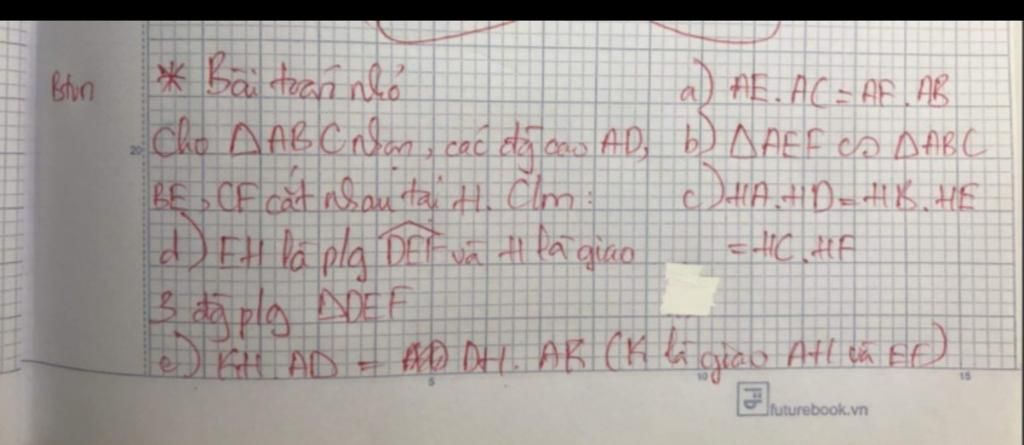 Btvn
* Bài toán nhỏ
Cho △ABC nhọn, các đg cao AD,
BE, CF cắt nhau tại H. Clm:
a) AE.AC=AF.AB
b) △AEF ∽ △ABC
c) HA.HD=HB.HE
=HC.HF
d) EH là plg DEF và H là giao
3 đg plg △DEF
e) KH. AD = DH. AK (K là giao AH và EF)
20
5
10
15
futurebook.vn